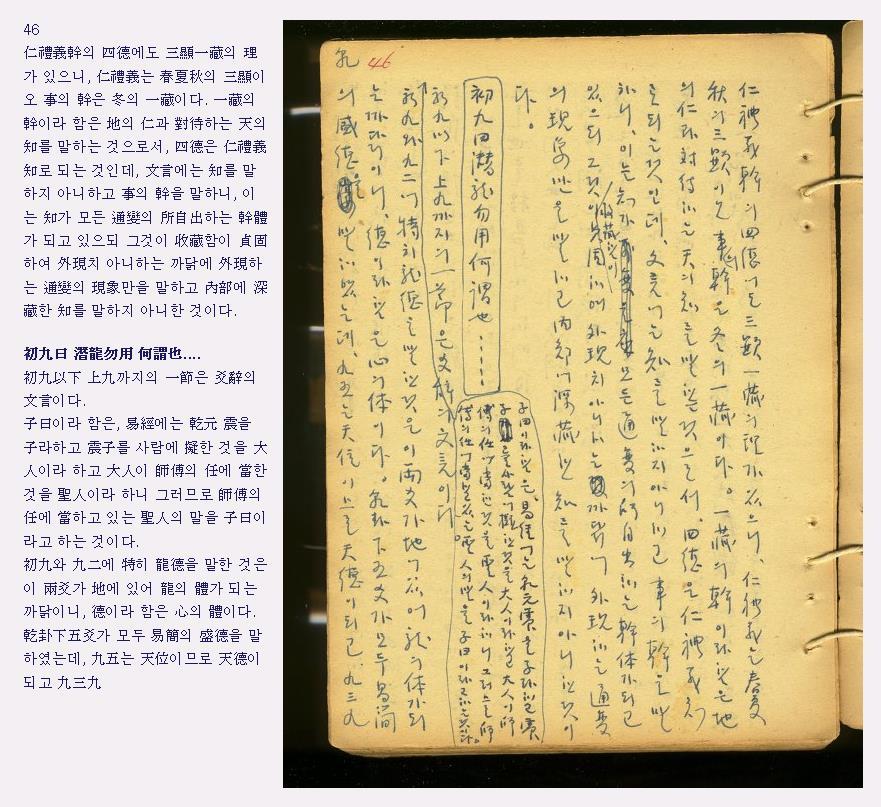 46
仁禮義幹의 四德에도 三顯一藏의 理
가 있으니, 仁禮義는 春夏秋의 三顯이
오 事의 幹은 冬의 一藏이다. 一藏의
幹이라 함은 地의 仁과 對待하는 天의
知를 말하는 것으로서, 四德은 仁禮義
知로 되는 것인데, 文言에는 知를 말
하지 아니하고 事의 幹을 말하니, 이
는 知가 모든 通變의 所自出하는 幹體
가 되고 있으되 그것이 收藏함이 貞固
하여 外現치 아니하는 까닭에 外現하
는 通變의 現象만을 말하고 內部에 深
藏한 知를 말하지 아니한 것이다.
初九曰 潛龍勿用 何謂也....
初九以下 上九까지의 一節은 爻辭의
文言이다.
子曰이라 함은, 易經에는 乾元 震을
子라하고 震子를 사람에 擬한 것을 大
人이라 하고 大人이 師傅의 任에 當한
것을 聖人이라 하니 그러므로 師傅의
任에 當하고 있는 聖人의 말을 子曰이
라고 하는 것이다.
初九와 九二에 特히 龍德을 말한 것은
이 兩爻가 地에 있어 龍의 體가 되는
까닭이니, 德이라 함은 心의 體이다.
乾卦下五爻가 모두 易簡의 盛德을 말
하였는데, 九五는 天位이므로 天德이
되고 九三九
乾 46
仁禮義幹의 四德에도 三顯一藏의 理가 있으니, 仁禮義는 春夏
秋의 三顯이오 事의 幹은 冬의 一藏이다. 一藏의 幹이라 함은 地
의 仁과 對待하는 天의 知를 말하는 것으로서, 四德은 仁禮義知
로 되는 것인데, 文言에는 知를 말하지 아니하고 事의 幹을 말
하니, 이는 知가 모든 通變의 所自出하는 幹体가 되고
있으되 그것이 收藏함이 貞固하여 外現치 아니하는 까닭에 外現하는 通變
의 現象만을 말하고 內部에 深藏한 知를 말하지 아니한 것이
다.
初九曰潛龍勿用何謂也.....
子曰이라 함은, 易經에는 乾元震을 子라하고 震
子를 사람에 擬한 것을 大人이라 하고 大人이 師
傅의 任에 當한 것을 聖人이라 하니 그러므로 師
傅의 任에 當하고 있는 聖人의 말을 子曰이라고 하는 것이다.
初九以下 上九까지의 一節은 爻辭의 文言이다
初九와 九二에 特히 龍德을 말한 것은 이 兩爻가 地에 있어 龍의 体가 되
는 까닭이니, 德이라 함은 心의 体이다. 乾卦下五爻가 모두 易簡
의 盛德을 말하였는데, 九五는 天位이므로 天德이 되고 九三九